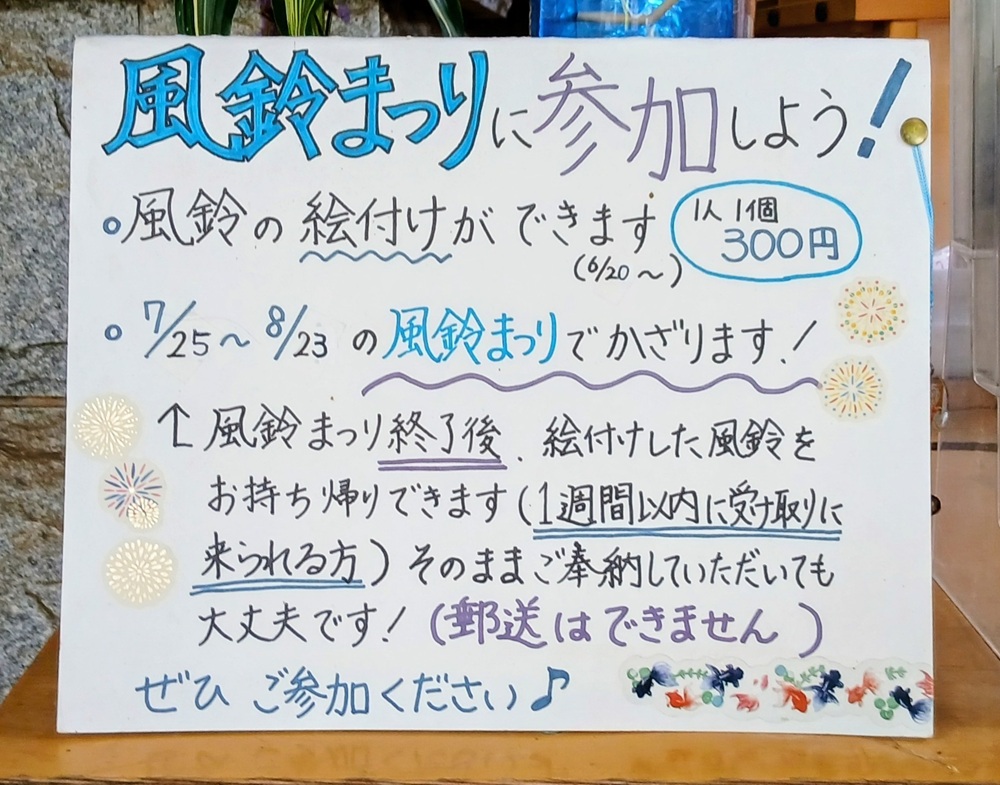 風鈴まつりに参加しよう!
。風鈴の絵付けができます
(6/20〜)
1人1個
300円
。7/25〜8/23の風鈴まつりでかざります!
↑風鈴まつり終了後、絵付けした風鈴を
お持ち帰りできます(1週間以内に受け取りに
来られる方)そのままご奉納していただいても
大丈夫です!(郵送はできません)
ぜひご参加ください♪